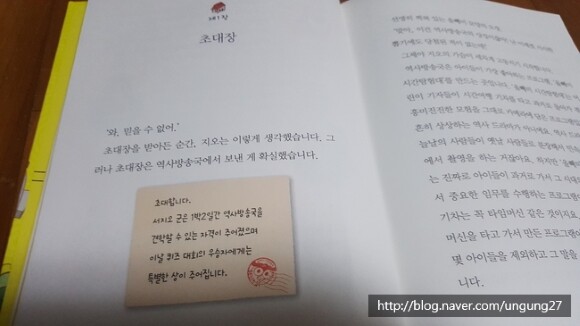 제1장
초대장
'와, 믿을 수 없어.'
초대장을 받아든 순간, 지오는 이렇게 생각했습니다. 그
러나 초대장은 역사방송국에서 보낸 게 확실했습니다.
초대합니다.
서지오 군은 1박2일간 역사방송국을
견학할 수 있는 자격이 주어졌으며
이날 퀴즈 대회의 우승자에게는
특별한 상이 주어집니다.
뽑기에도 당첨된 적이 없는데!
그때야 지오의 가슴이
역사방송국은 아이들이 가장 좋아하는 프로그램,
시간탐험대를 만드는 곳입니다.
린이 기자들이 시간여행 기차를 타고
흥미진진한 모험을 그대로
흔히 상상하는 역사 드라마가 아니에요.
늘날의 사람들이 옛날 사람들로
에서 촬영을 하는 거잖아요. 하지만
는 진짜로 아이들이 과거로 가서 그
서 중요한 임무를 수행하는 프로그램이
기차는 꼭 타임머신 같은 것이지요.
머신을 타고 가서 만든 프로그램이
몇 아이들을 제외하고 그 말을
니다.
http://blog.naver.com/ungung27